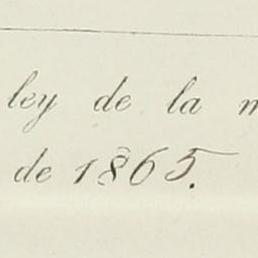 ley de la
de 1865.